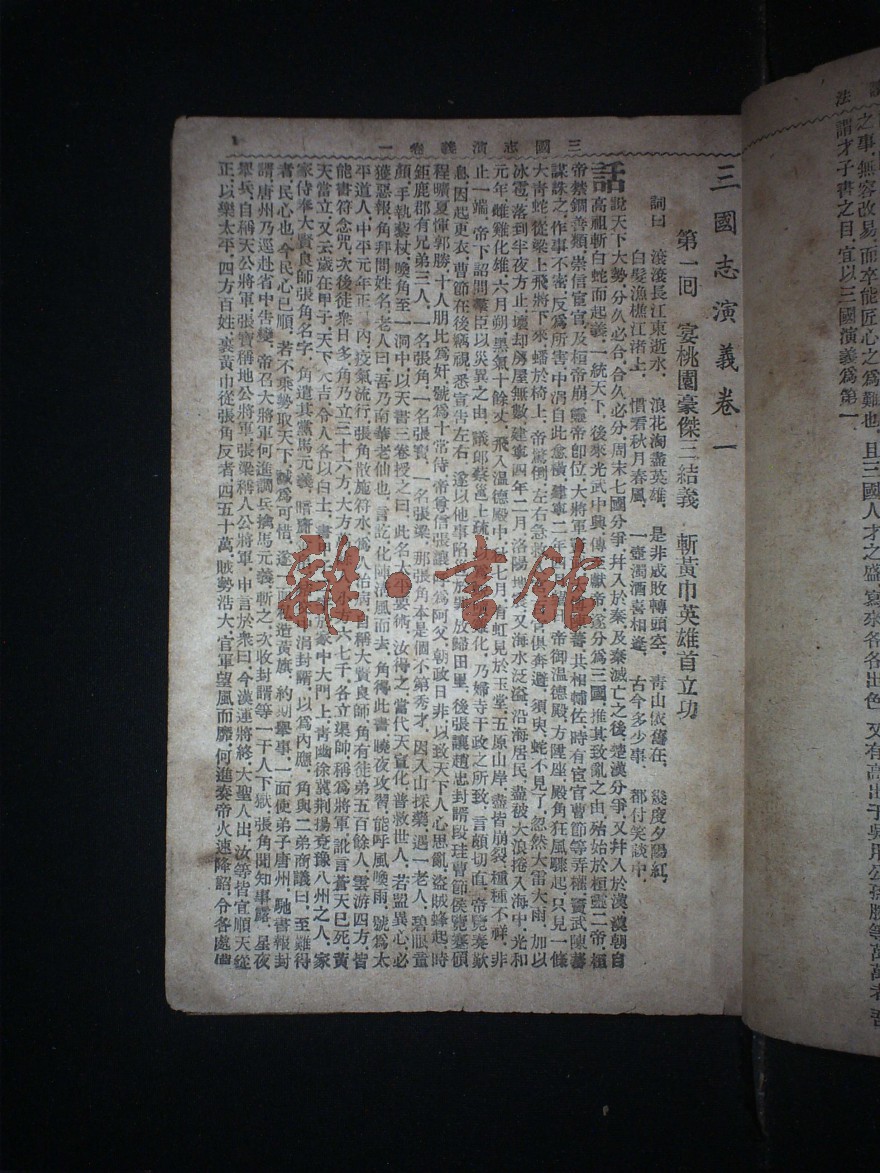 法
之事,無容改易,而卒能匠心之爲難也,且三國人才之盛,寫來各各出色,又有高出于吳用公孫勝等萬萬者,吾
謂才子書之目,宜以三國演義爲第一,
三國志演義卷一
1
三國志演義卷一
第一回 宴桃園豪傑三結義 斬黃巾英雄首立功
詞曰 滾滾長江東逝水, 浪花淘盡英雄, 是非成敗轉頭空, 青山依舊在, 幾度夕陽紅,
白髮漁樵江渚上, 慣看秋月春風, 一壺濁酒喜相逢, 古今多少事, 都付笑談中,
話說天下大勢,分久必合,合久必分,周末七國分爭,幷入於秦,及秦滅亡之後,楚漢分爭,又幷入於漢,漢朝自
高祖斬白蛇而起義,一統天下,後來光武中興,傳獻帝,遂分爲三國,推其致亂之由,殆始於桓靈二帝,桓
帝禁錮善類,崇信宦官,及桓帝崩,靈帝卽位,大將軍竇蕃,共相輔佐,時有宦官曹節等弄權,竇武陳蕃
謀誅之,作事不密,反爲所害,中涓自此愈橫,建寧二年日,帝御溫德殿,方陞座,殿角狂風驟起,只見一條
大青蛇,從梁上飛將下來,蟠於椅上,帝驚倒,左右急救官俱奔避,須臾,蛇不見了,忽然大雷大雨,加以
冰雹,落到半夜方止,壞却房屋無數,建寧四年二月,洛陽地震,又海水泛溢,沿海居民,盡被大浪捲入海中,光和
元年,雌雞化雄,六月朔,黑氣十餘丈,飛入溫德殿中,七月,有虹見於玉堂,五原山岸,盡皆崩裂,種種不祥,非
止一端,帝下詔問羣臣以災異之由,議郎蔡邕上疏化,乃婦寺干政之所致,言頗切直,帝覽奏歎
息,因起更衣,曹節在後竊視,悉宣告左右,遂以他事陷放歸田里,後張讓趙忠封諝段珪曹節侯覽蹇碩
程曠夏惲郭勝,十人朋比爲奸,號爲十常侍,帝尊信張讓,爲阿父,朝政日非,以致天下人心思亂,盜賊蜂起,時
鉅鹿郡有兄弟三人,一名張角,一名張寶,一名張梁,那張角本是個不第秀才,因入山採藥,遇一老人,碧眼童
顏,手執藜杖,喚角至一洞中,以天書三卷授之曰,此名太平要術,汝得之,當代天宣化,普救世人,若萌異心,必
獲惡報,角拜問姓名,老人曰,吾乃南華老仙也,言訖,化陣清風而去,角得此書,曉夜攻習,能呼風喚雨,號爲太
平道人,中平元年正月內,疫氣流行,張角散施符水,爲人治病,自稱大賢良師,角有徒弟五百餘人,雲游四方,皆
能書符念咒,次後徒衆日多,角乃立三十六方,大方六七千,各立渠帥,稱爲將軍,訛言蒼天已死,黃
天當立,又云歲在甲子,天下大吉,令人各以白土,書於家中大門上,青幽徐冀荊揚兗豫八州之人,家
家侍奉大賢良師張角名字,角遣其黨馬元義,暗齎涓封諝,以爲內應,角與二弟商議曰,至難得
者,民心也,今民心已順,若不乘勢取天下,誠爲可惜,遂一面私造黃旗,約期舉事,一面使弟子唐州,馳書報封
諝,唐州乃逕赴省中告變,帝召大將軍何進,調兵擒馬元義,斬之,次收封諝等一干人下獄,張角聞知事露,星夜
舉兵,自稱天公將軍,張寶稱地公將軍,張梁稱人公將軍,申言於衆曰,今漢運將終,大聖人出,汝等皆宜順天從
正,以樂太平,四方百姓,裹黃巾從張角反者,四五十萬,賊勢浩大,官軍望風而靡,何進奏帝火速降詔,令各處備
雜·書館